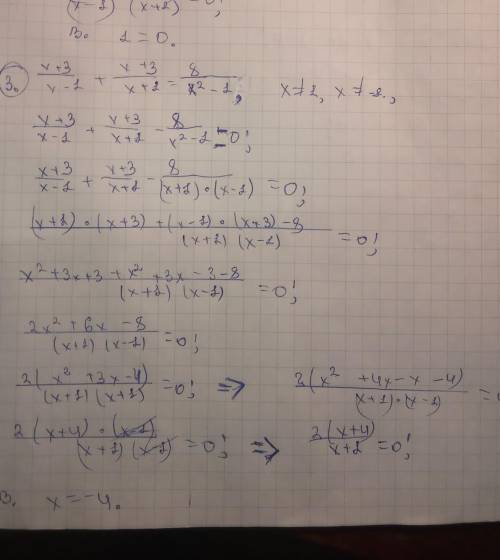 (x-1) (x+2) = 0;
В. 1 = 0.
3. x+3/x-1 + x+3/x+1 = 8/x²-1; x≠1, x≠-1;
x+3/x-1 + x+3/x+1 - 8/x²-1 = 0;
x+3/x-1 + x+3/x+1 - 8/(x+1)·(x-1) = 0;
(x+1)·(x+3) + (x-1)·(x+3) - 8/(x+1)(x-1) = 0;
x²+3x+3+x²+3x-3-8/(x+1)(x-1) = 0;
2x²+6x-8/(x+1)(x-1) = 0;
2(x²+3x-4)/(x+1)(x+1) = 0; => 2(x²+4x-x-4)/(x+1)·(x-1) =
2(x+4)·(x-1)/(x+1)(x-1) = 0; => 2(x+4)/x+1 = 0;
В. x = -4.